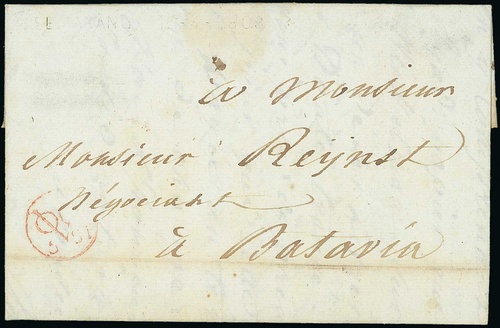 à Monsieur
Monsieur Reynst
Négociant
à Batavia